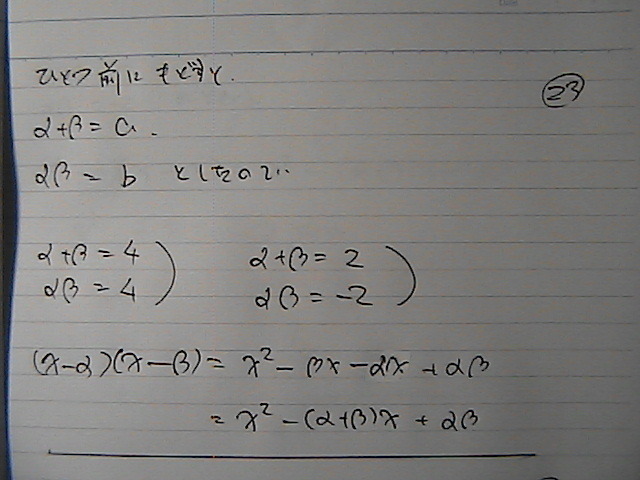 ひとつ前にもどすと.
㉓
α+β = a.
αβ = b としたので..
α+β = 4
αβ = 4 )
α+β = 2
αβ = -2 )
(x-α)(x-β) = x² - βx - αx + αβ
= x² - (α+β)x + αβ